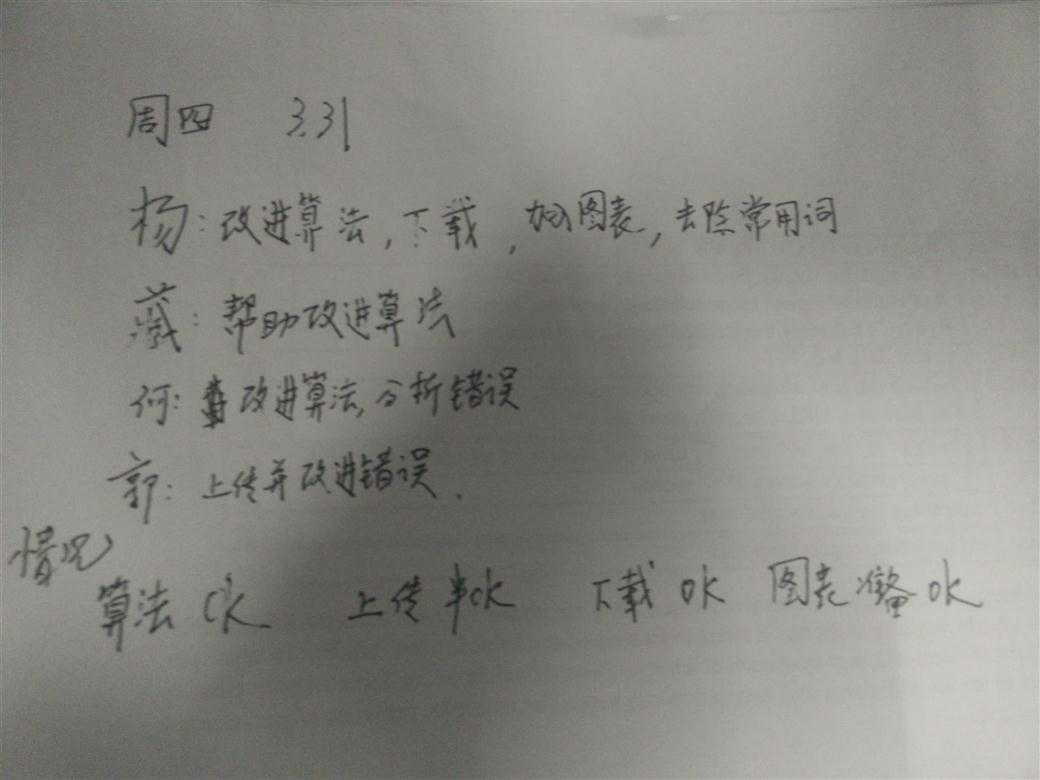 周四 3.31
杨:改进算法,下载,加图表,去除常用词
臧:帮助改进算法
何:改进算法,分析错误
郭:上传并改进错误.
情况
算法 OK 上传 半OK 下载 OK 图表准备 OK